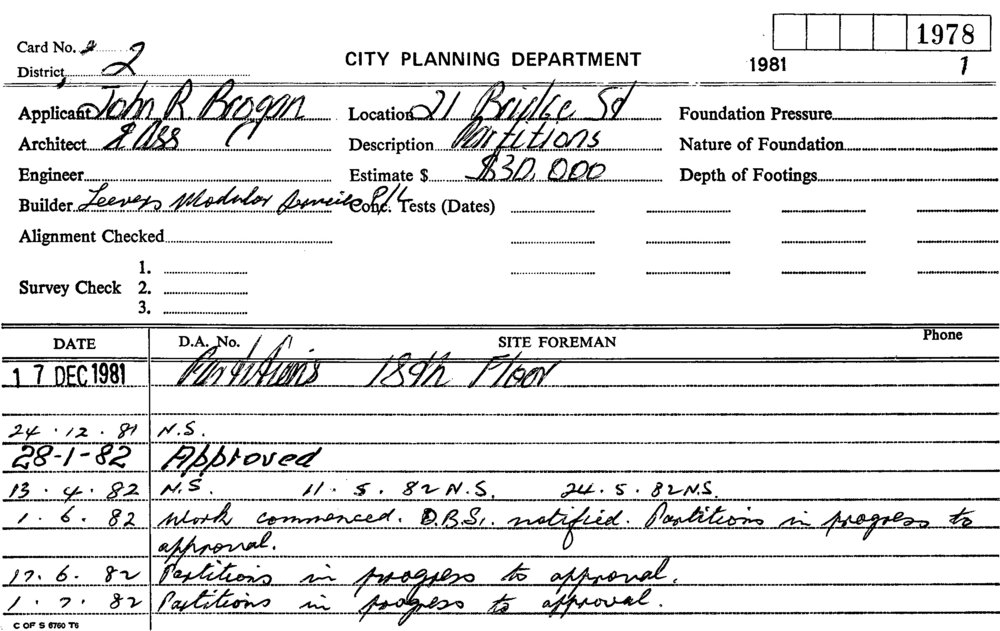 1978
Card No. 2
CITY PLANNING DEPARTMENT
1981 1
District 2
Applicant John R. Brogan Location 21 Bridge St Foundation Pressure
Architect & Ass Description Partitions Nature of Foundation
Engineer Estimate $ $30,000 Depth of Footings
Builder Leevers Modular Services P/L Conc. Tests (Dates)
Alignment Checked
1.
Survey Check 2.
3.
DATE D.A. No. SITE FOREMAN Phone
17 DEC 1981 Partitions 18th Floor
24.12.81 N.S.
28-1-82 Approved
13.4.82 N.S. 11.5.82 N.S. 24.5.82 N.S.
1.6.82 Work commenced. D.B.S. notified. Partitions in progress to
approval.
17.6.82 Partitions in progress to approval.
1.7.82 Partitions in progress to approval.
C OF S 6760 T6